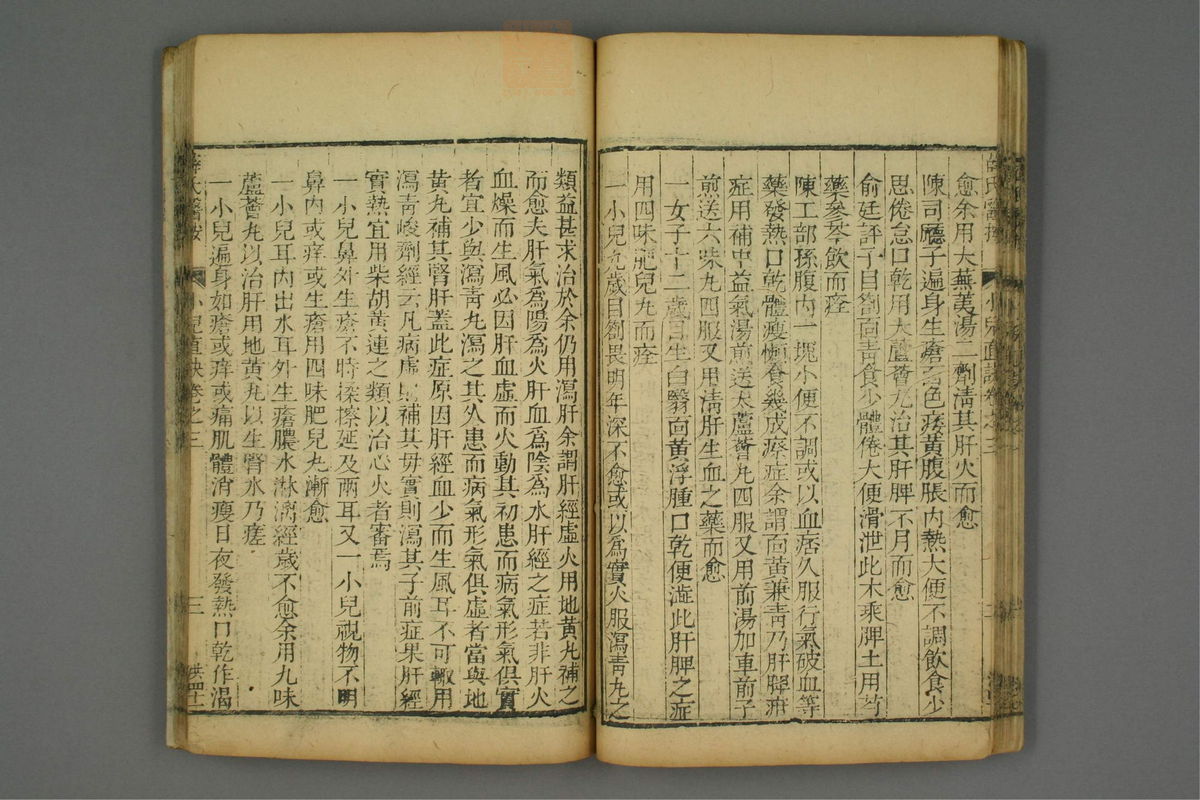 愈余用大蕪荑湯二劑淸其肝火而愈
陳司廳子遍身生瘡面色痿黃腹脹內熱大便不調飮食少
思倦怠口乾用大蘆薈丸治其肝脾不月而愈
俞廷評子目劄面靑食少體倦大便滑泄此木乘脾土用芍
藥參苓飮而痊
陳工部孫腹內一塊小便不調或以血痞久服行氣破血等
藥發熱口乾體瘦懶食幾成瘵症余謂面黃兼靑乃肝脾疳
症用補中益氣湯煎送大蘆薈丸四服又用前湯加車前子
煎送六味丸四服又用淸肝生血之藥而愈
一女子十二歲目生白翳面黃浮腫口乾便澁此肝脾之症
用四味肥兒丸而痊
一小兒九歲目劄畏明年深不愈或以爲實火服瀉靑丸之
類益甚求治於余仍用瀉肝余謂肝經虛火用地黃丸補之
而愈夫肝氣爲陽爲火肝血爲陰爲水肝經之症若非肝火
血燥而生風必因肝血虛而火動其初患而病氣形氣俱實
者宜少與瀉靑丸瀉之其久患而病氣形氣俱虛者當與地
黃丸補其腎肝蓋此症原因肝經血少而生風耳不可輙用
瀉靑峻劑經云凡病虛則補其母實則瀉其子前症果肝經
實熱宜用柴胡黃連之類以治心火者審焉
一小兒鼻外生瘡不時揉擦延及兩耳又一小兒視物不明
鼻內或痒或生瘡用四味肥兒丸漸愈
一小兒耳內出水耳外生瘡膿水淋漓經歲不愈余用九味
蘆薈丸以治肝用地黃丸以生腎水乃瘥
一小兒遍身如瘡或痒或痛肌體消瘦日夜發熱口乾作渴
薛氏醫按
小兒直訣卷之三
三